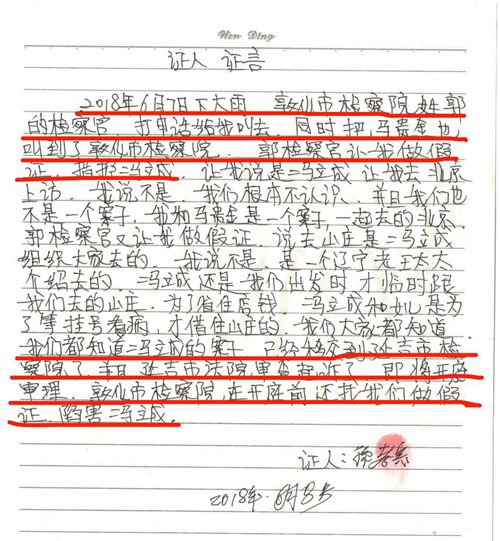 Wen Ding
证人 证言
2018年6月7日下大雨 敦化市检察院姓郭
的检察官 打电话给我叫去 同时把马贵金也
叫到了敦化市检察院 郭检察官让我做假
证 指挥马立成 让我说是马立成让我去北京
上访 我说不是 我们根本不认识 并且我们也
不是一个案子 我和马贵金是一个案子一起去的北京
郭检察官又让我做假证 说去山庄是马立成
组织大家去的 我说不是 是一个辽宁老王太太
介绍去的 马立成还是我们出发时才临时跟
我们去的山庄 为了省住店钱 马立成和她是为
了等挂号看病 才借住山庄的 我们大家都知道
我们都知道马立成的案子 已经移交到延吉市检
察院了 并且延吉市法院审查起诉了 即将开庭
审理 敦化市检察院在开庭前还找我们做假
证 陷害马立成.
证人: 孙
2018年